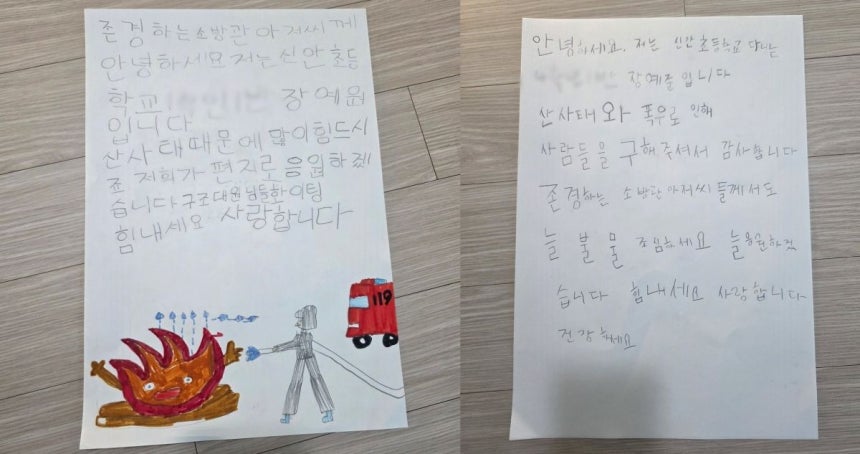 존경하는소방관아저씨께
안녕하세요저는신안초등
학교 장예원
입니다
산사태때문에많이힘드시
죠 저희가 편지로응원하겠
습니다구조대원님들화이팅
힘내세요 사랑합니다
119
안녕하세요. 저는 신안초등학교 다니는
장예준입니다
산사태와 폭우로 인해
사람들을 구해주셔서 감사합니다
존경하는 소방관아저씨들께서도
늘 불 물 조심하세요 늘응원하겠
습니다 힘내세요 사랑합니다
건강하세요